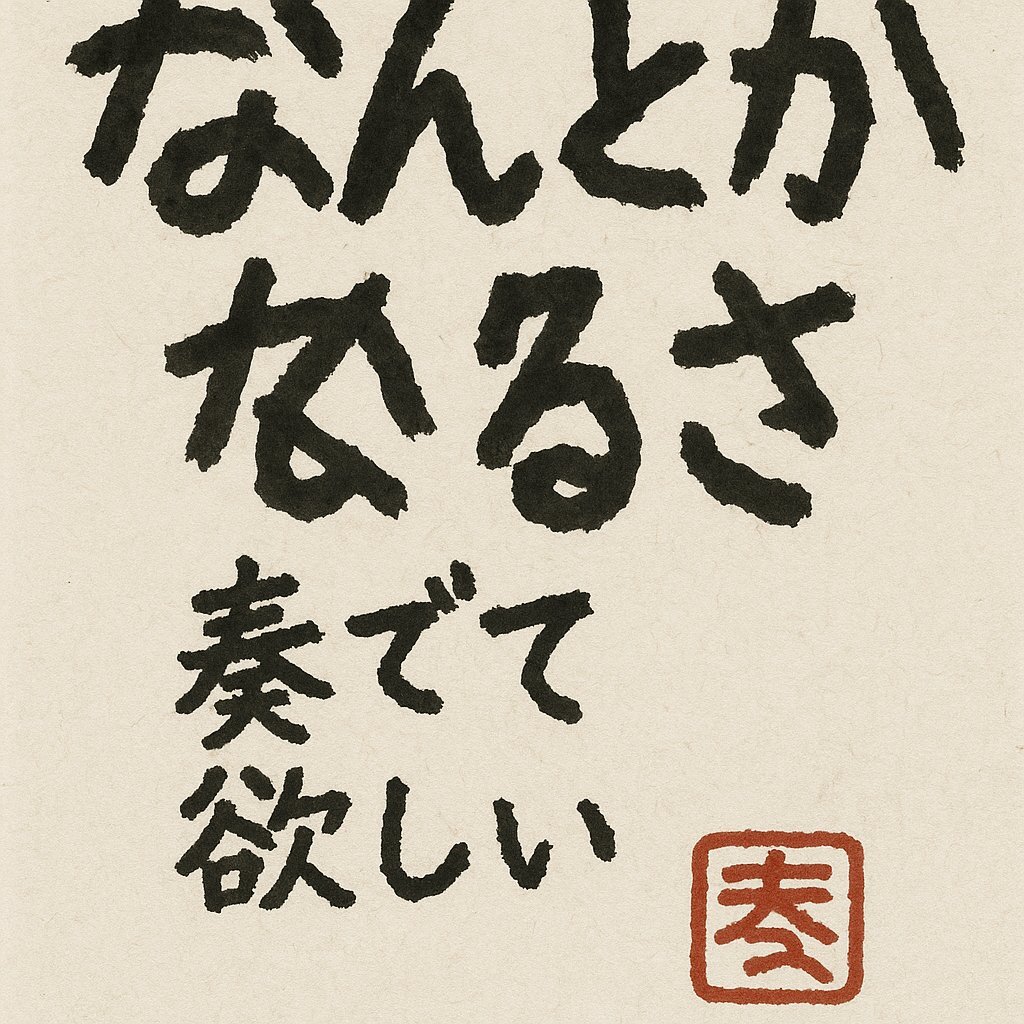 なんとか
なるさ
奏でて
欲しい